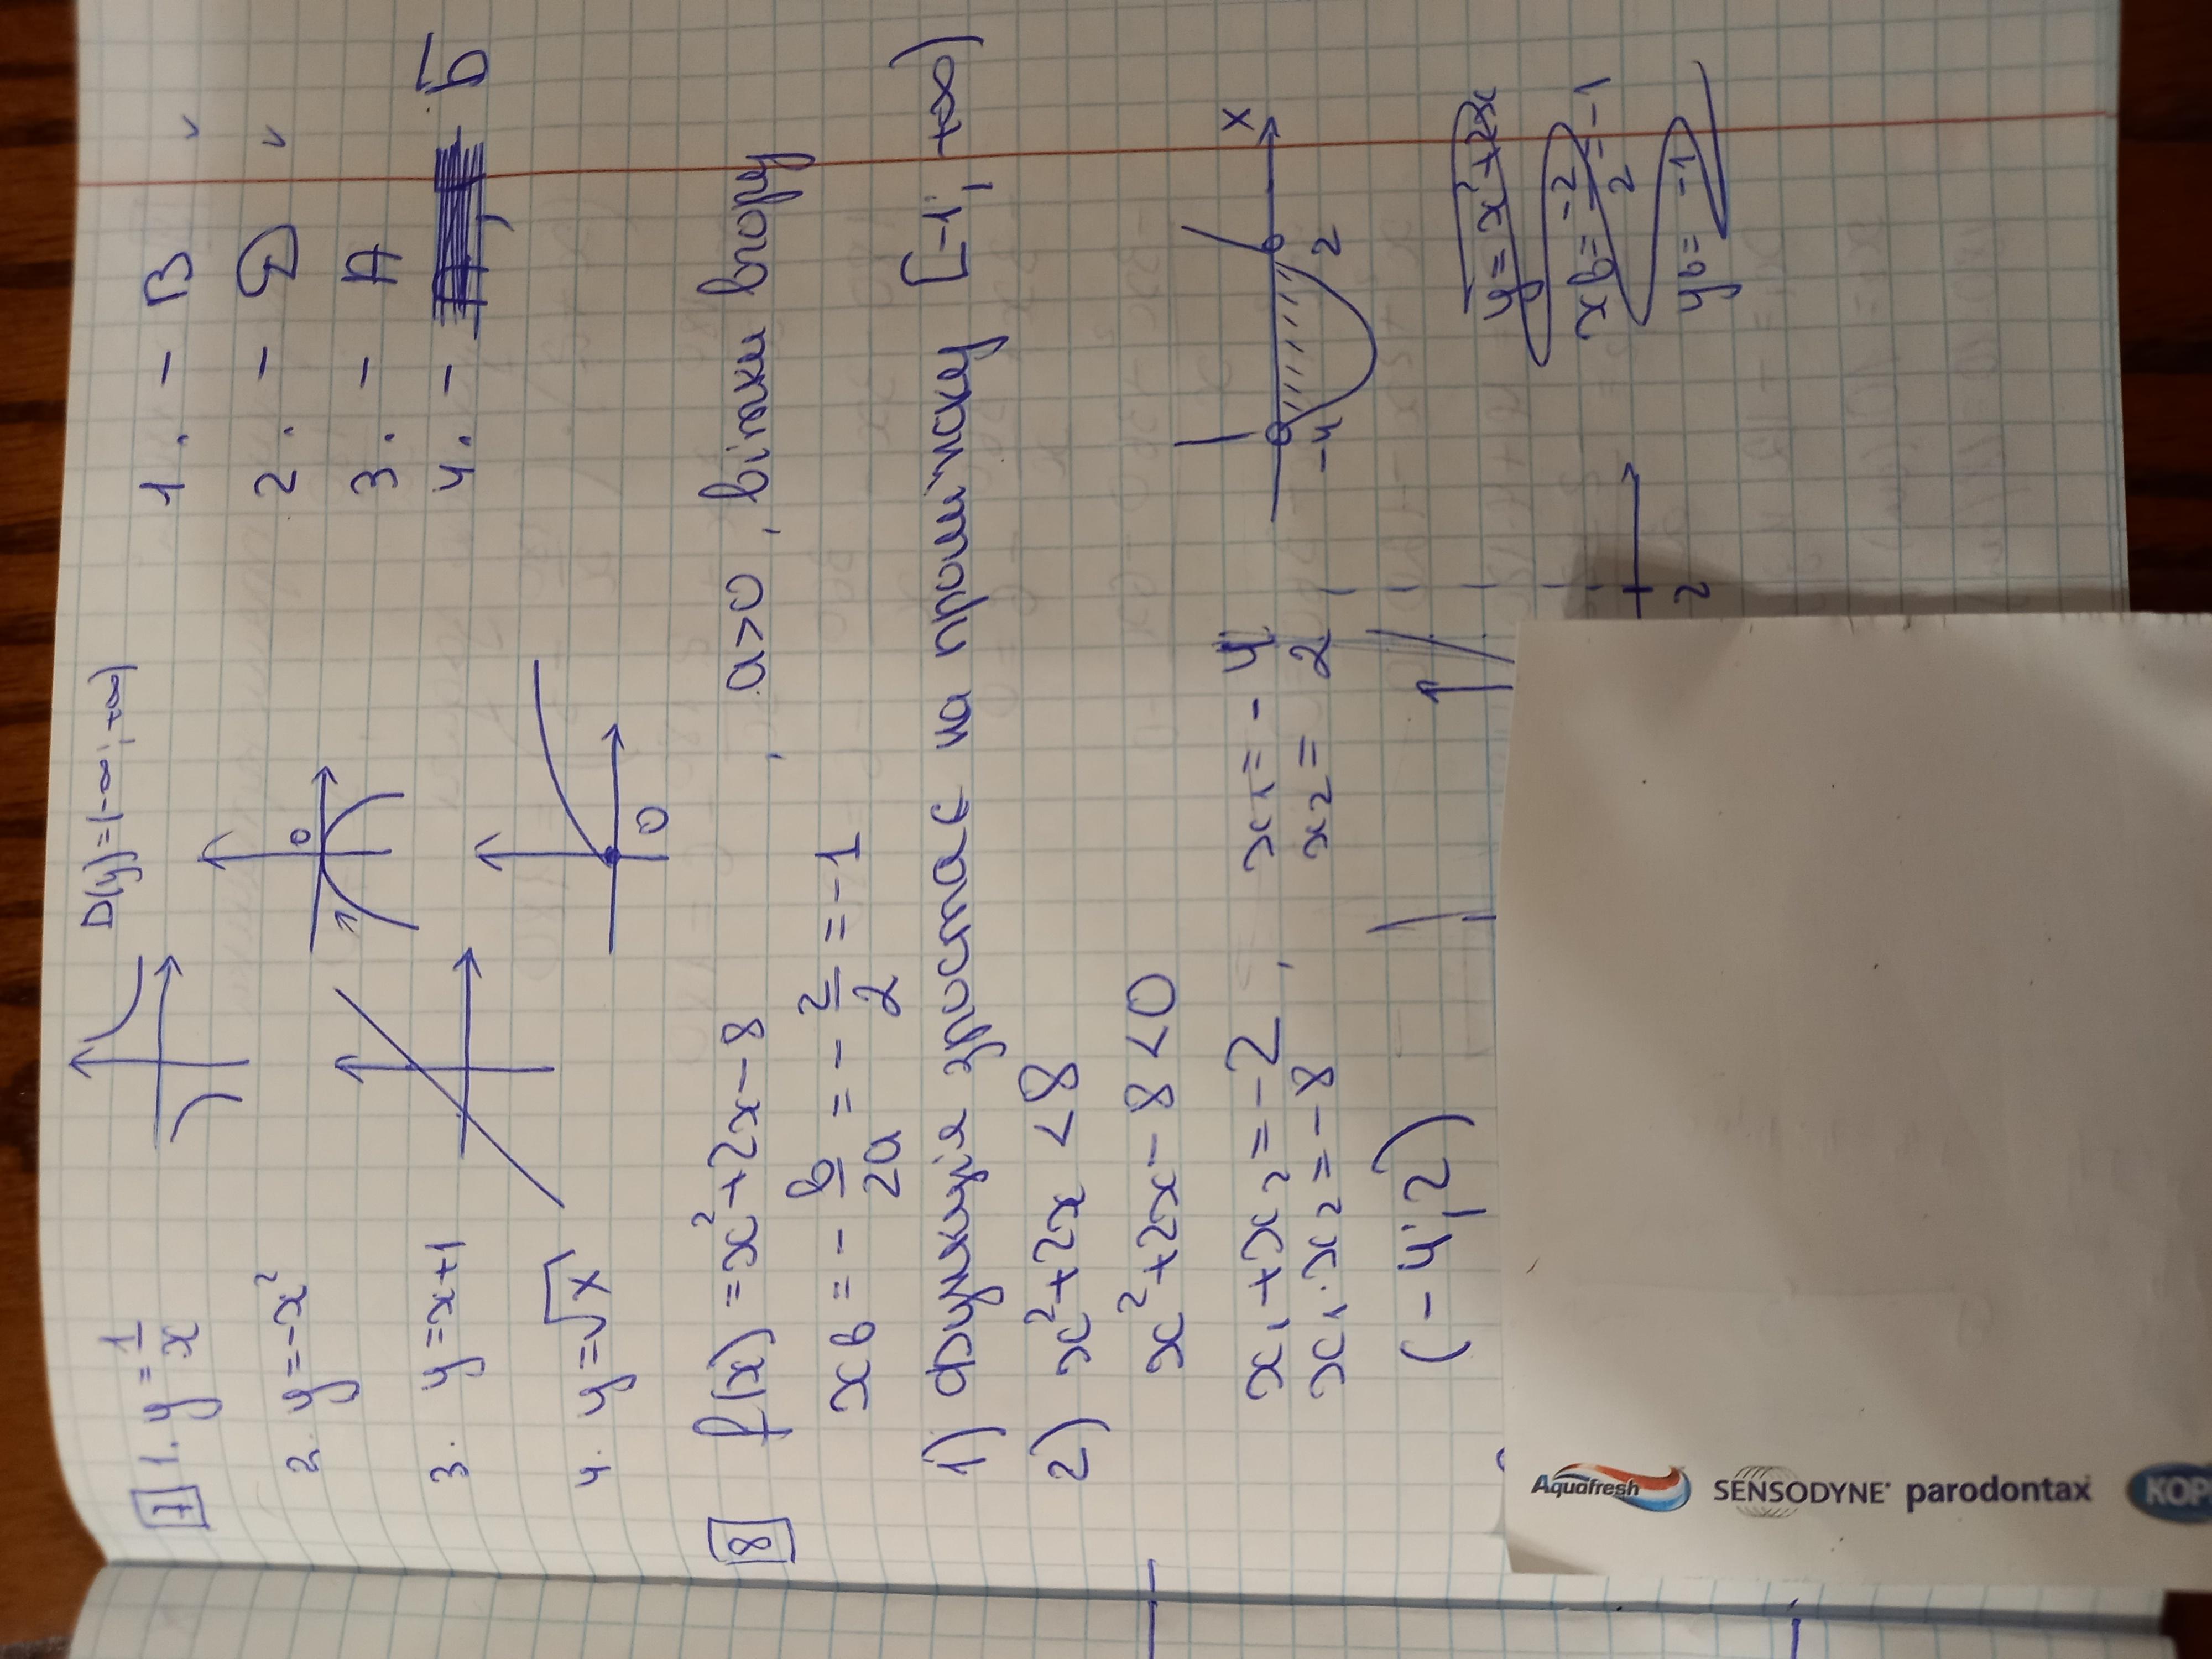 7 1. y = 1/x D(y)=(-∞; +∞) 1. - В
2. y = -x² 0 2. - Д
3. y = x+1 3. - А
4. y = √x 0 4. - Б
8 f(x) = x² + 2x - 8, a>0, вітки вгору
xв = - b/2a = - 2/2 = -1
1) функція зростає на проміжку [-1; +∞)
2) x² + 2x < 8
x² + 2x - 8 < 0
x₁ + x₂ = -2, x₁ = -4
x₁ · x₂ = -8 x₂ = 2
-4 2 x
(-4; 2)
y = x² + 2x
xв = -2/2 = -1
yв = -1
2
Aquafresh SENSODYNE parodontax